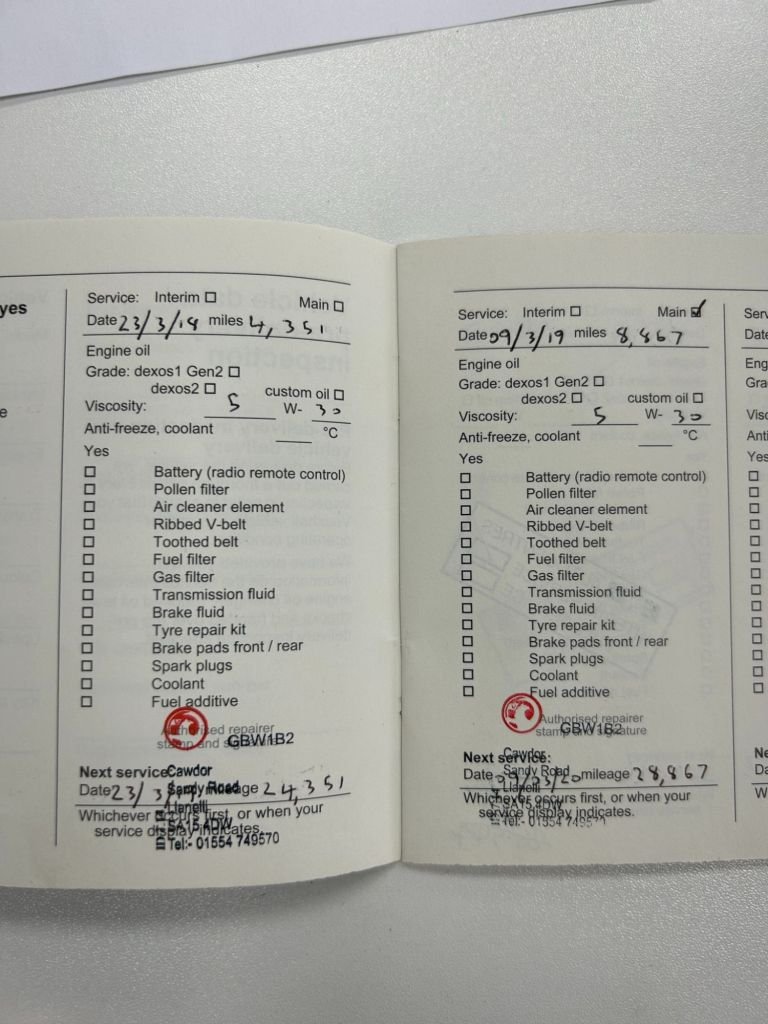 yes
e
Service: Interim ☐ Main ☐
Date 23/3/18 miles 4,351
Engine oil
Grade: dexos1 Gen2 ☐
dexos2 ☐ custom oil ☐
Viscosity: 5 W- 30
Anti-freeze, coolant ____ °C
Yes
☐ Battery (radio remote control)
☐ Pollen filter
☐ Air cleaner element
☐ Ribbed V-belt
☐ Toothed belt
☐ Fuel filter
☐ Gas filter
☐ Transmission fluid
☐ Brake fluid
☐ Tyre repair kit
☐ Brake pads front / rear
☐ Spark plugs
☐ Coolant
☐ Fuel additive
Authorised repairer
stamp and signature
GBW1B2
Next service:
Cawdor
Date 23/3/19 mileage 24,351
Sandy Road
Llanelli
Whichever occurs first, or when your
SA15 4DW
service display indicates.
Tel:- 01554 749570
Service: Interim ☐ Main ☑
Date 09/3/19 miles 8,867
Engine oil
Grade: dexos1 Gen2 ☐
dexos2 ☐ custom oil ☐
Viscosity: 5 W- 30
Anti-freeze, coolant ____ °C
Yes
☐ Battery (radio remote control)
☐ Pollen filter
☐ Air cleaner element
☐ Ribbed V-belt
☐ Toothed belt
☐ Fuel filter
☐ Gas filter
☐ Transmission fluid
☐ Brake fluid
☐ Tyre repair kit
☐ Brake pads front / rear
☐ Spark plugs
☐ Coolant
☐ Fuel additive
Authorised repairer
stamp and signature
GBW1B2
Next service:
Cawdor
Sandy Road
Date 09/03/20 mileage 28,867
Llanelli
Whichever occurs first, or when your
service display indicates.
Tel:- 01554
Serv
Date
Eng
Gra
Visc
Anti
Yes
Ne
Da
W